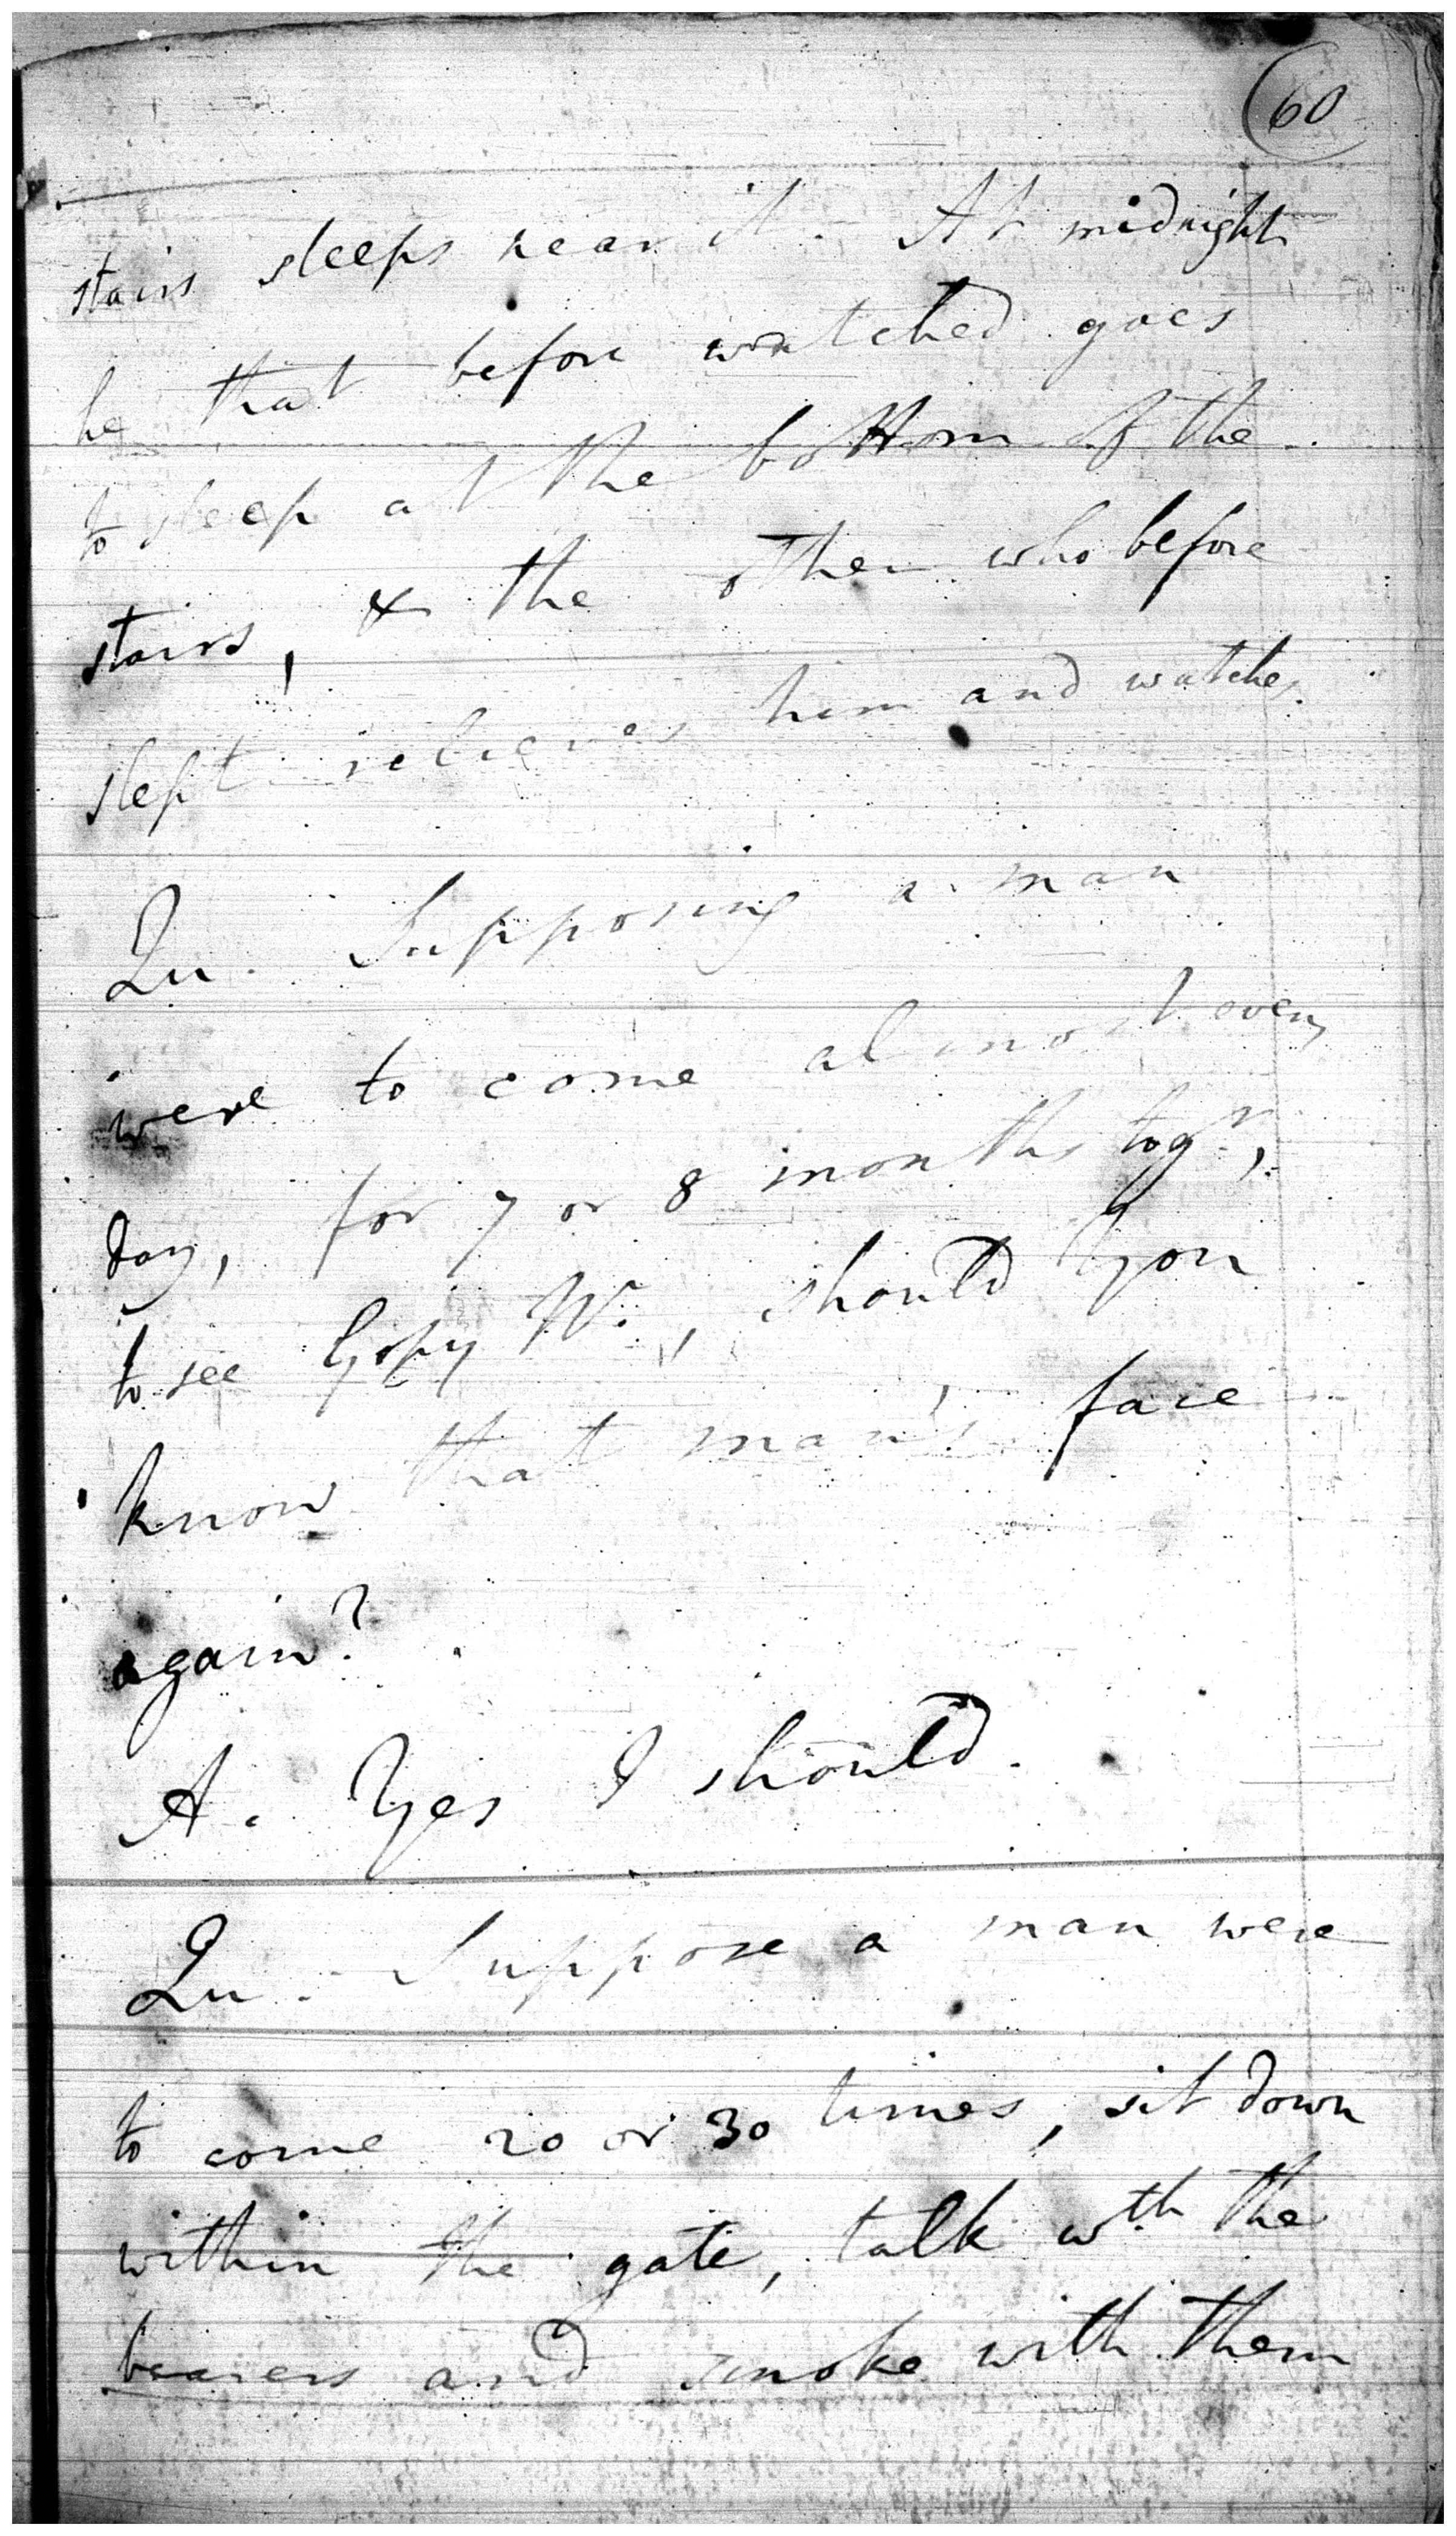 60
stairs sleeps near it. At midnight
he that before watched goes
to sleep at the bottom of the
stairs, & the other who before
slept relieves him and watches.
Qu. Supposing a man
were to come almost every
day, for 7 or 8 months togr,
to see Gopy Nr., should you
know that man's face
again?
A. Yes I should.
Qu. Suppose a man were
to come 20 or 30 times, sit down
within the gate, talk wth the
bearers and smoke with them